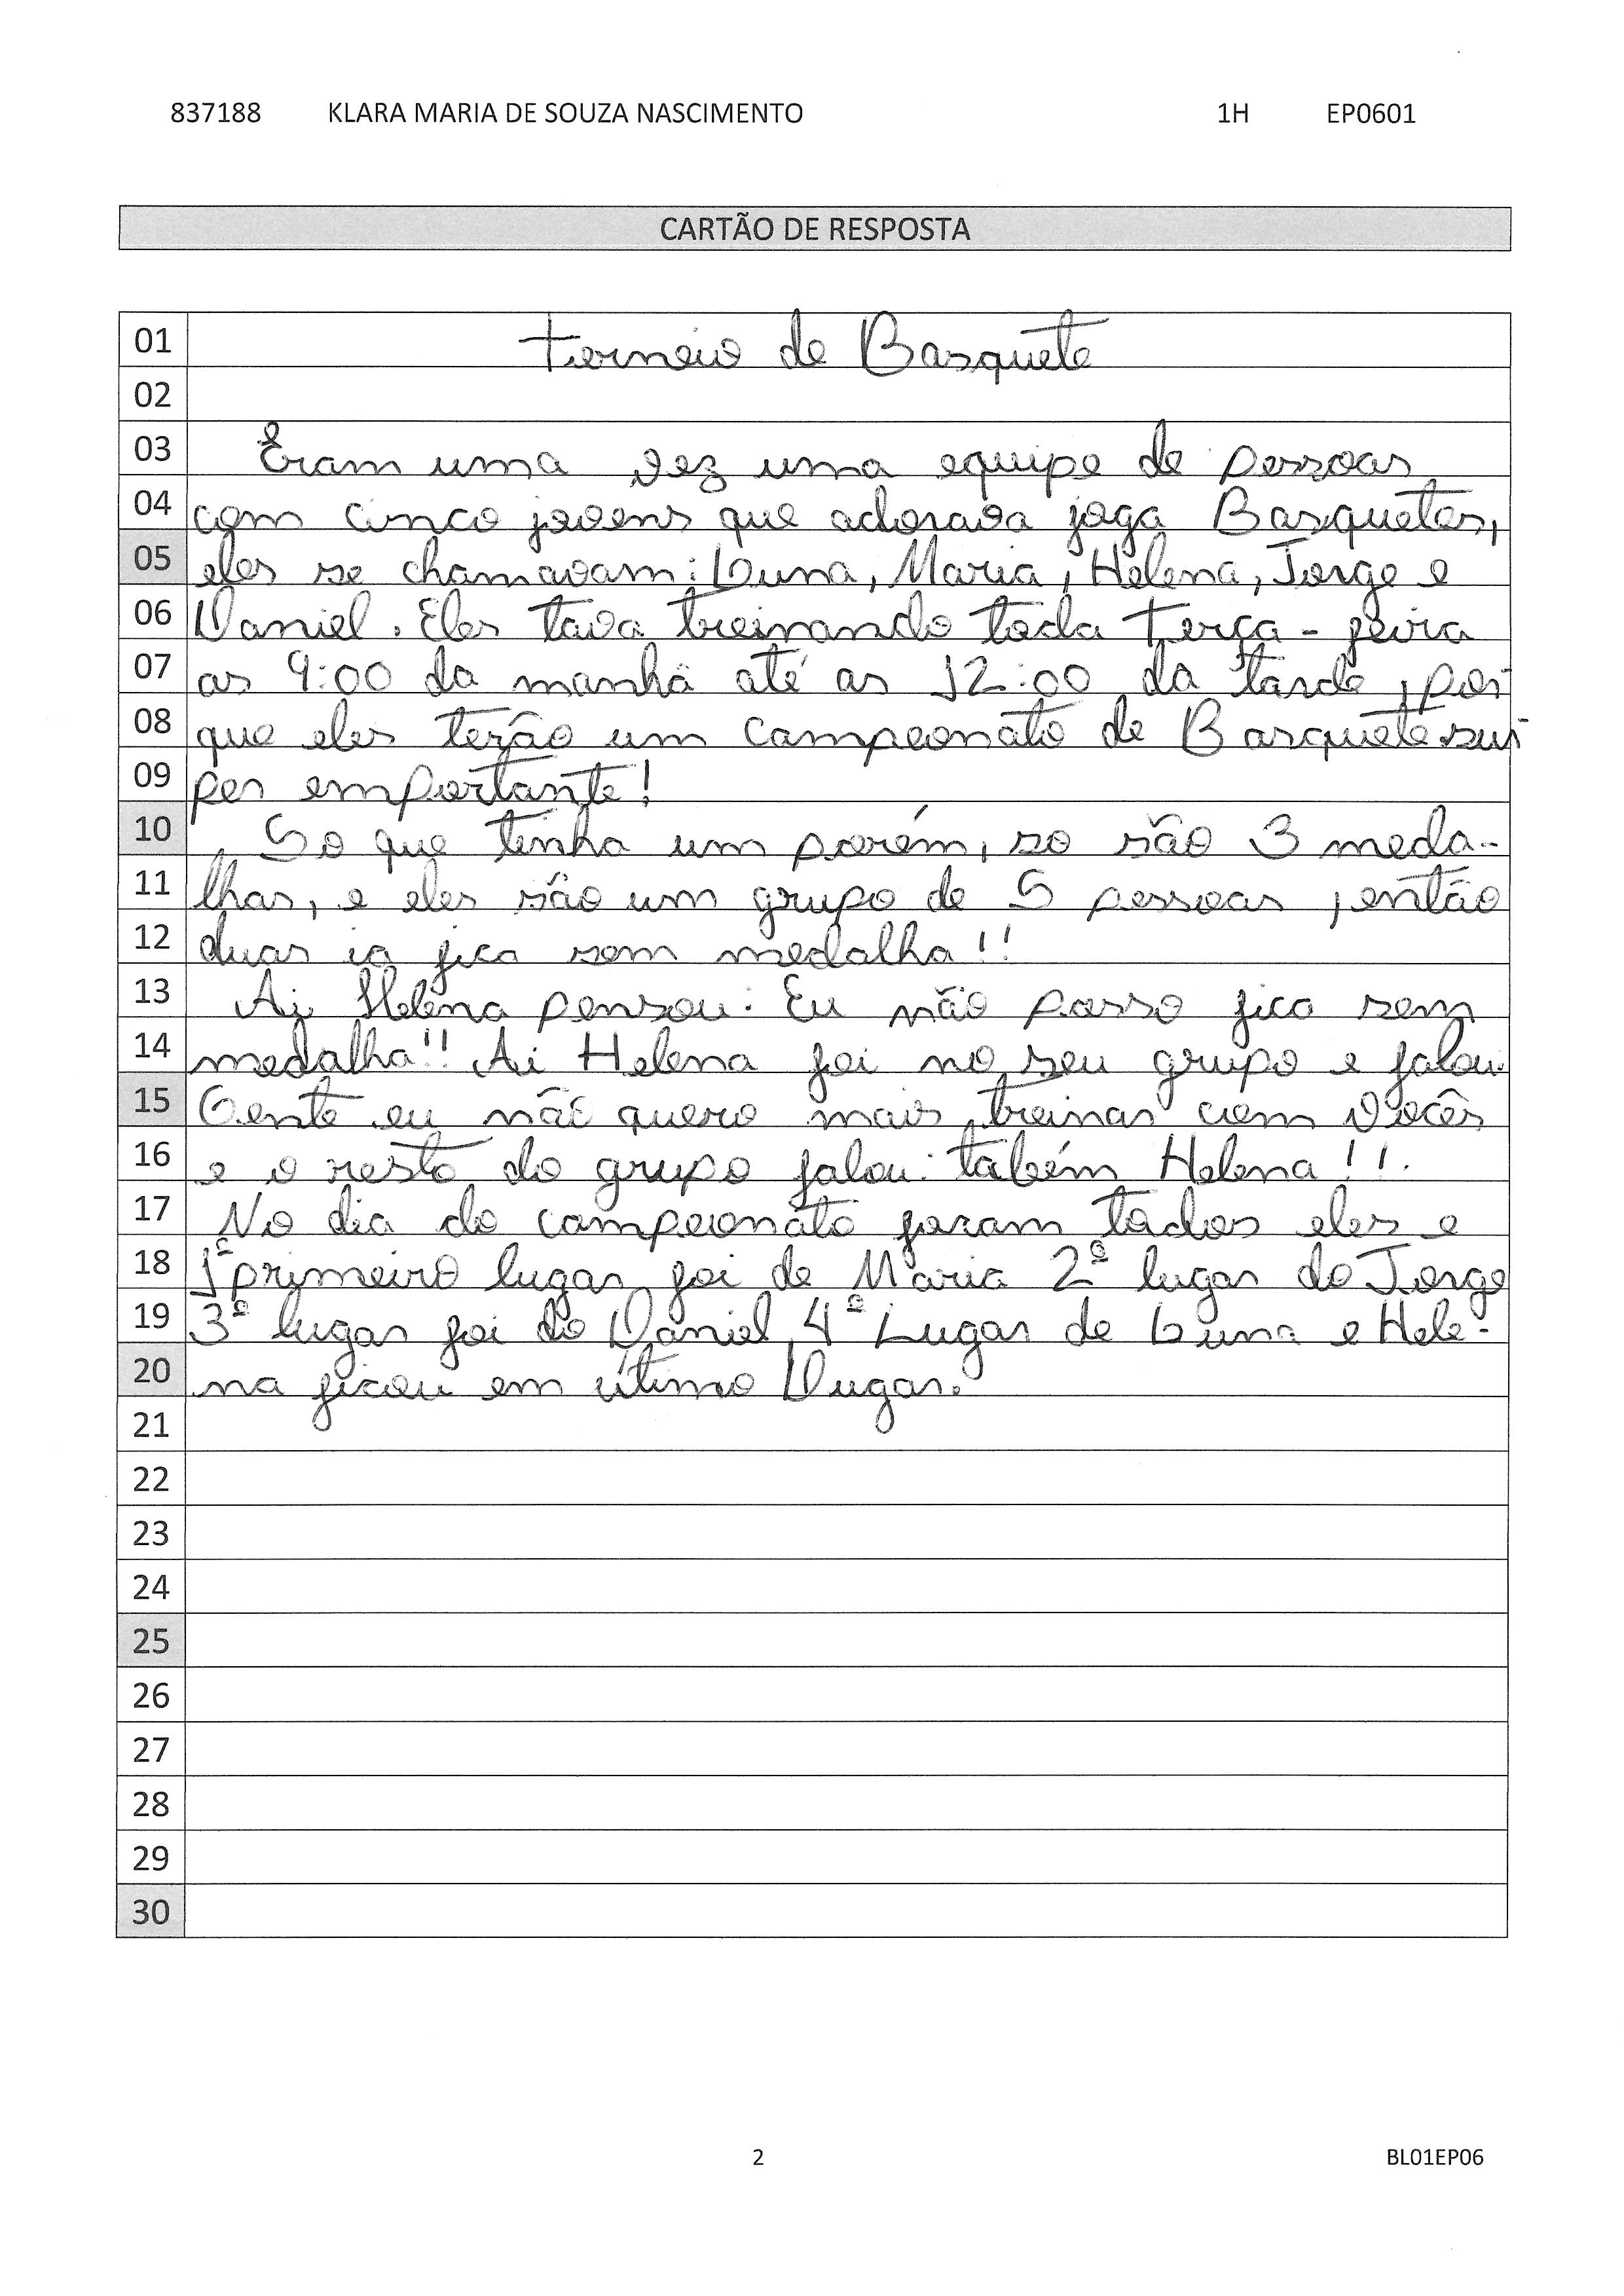 837188 KLARA MARIA DE SOUZA NASCIMENTO 1H EP0601
CARTÃO DE RESPOSTA
01 Torneio de Basquete
02
03 Eram uma vez uma equipe de pessoas
04 com cinco jovens que adorava joga Basquetes,
05 eles se chamavam: Luna, Maria, Helena, Jorge e
06 Daniel. Eles tava treinando toda Terça-feira
07 as 9:00 da manhã até as 12:00 da tarde, por
08 que eles terão um campeonato de Basquete su
09 per emportante!
10 So que tinha um porém, so são 3 meda-
11 lhas, e eles são um grupo de 5 pessoas, então
12 duas ia fica sem medalha!!
13 Ai Helena pensou: Eu não posso fica sem
14 medalha!! Ai Helena foi no seu grupo e falou:
15 Gente eu não quero mais treinar com vocês
16 e o resto do grupo falou: tabém Helena!!.
17 No dia do campeonato foram todos eles e
18 1º primeiro lugar foi de Maria 2º lugar do Jorge
19 3º lugar foi do Daniel, 4º Lugar de Luna e Hele-
20 na ficou em útimo Lugar.
21
22
23
24
25
26
27
28
29
30
2 BL01EP06